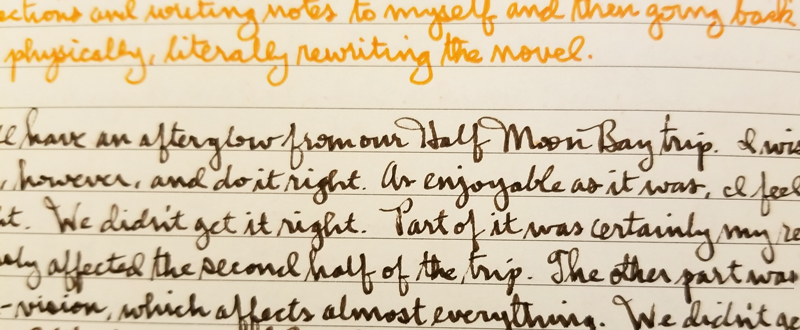 ections and writing notes to myself and then going back
physically, literally rewriting the novel.
have an afterglow from our Half Moon Bay trip. I wis
, however, and do it right. As enjoyable as it was, I feel
it. We didn't get it right. Part of it was certainly my re
ly affected the second half of the trip. The other part was
-vision, which affects almost everything. We didn't ge